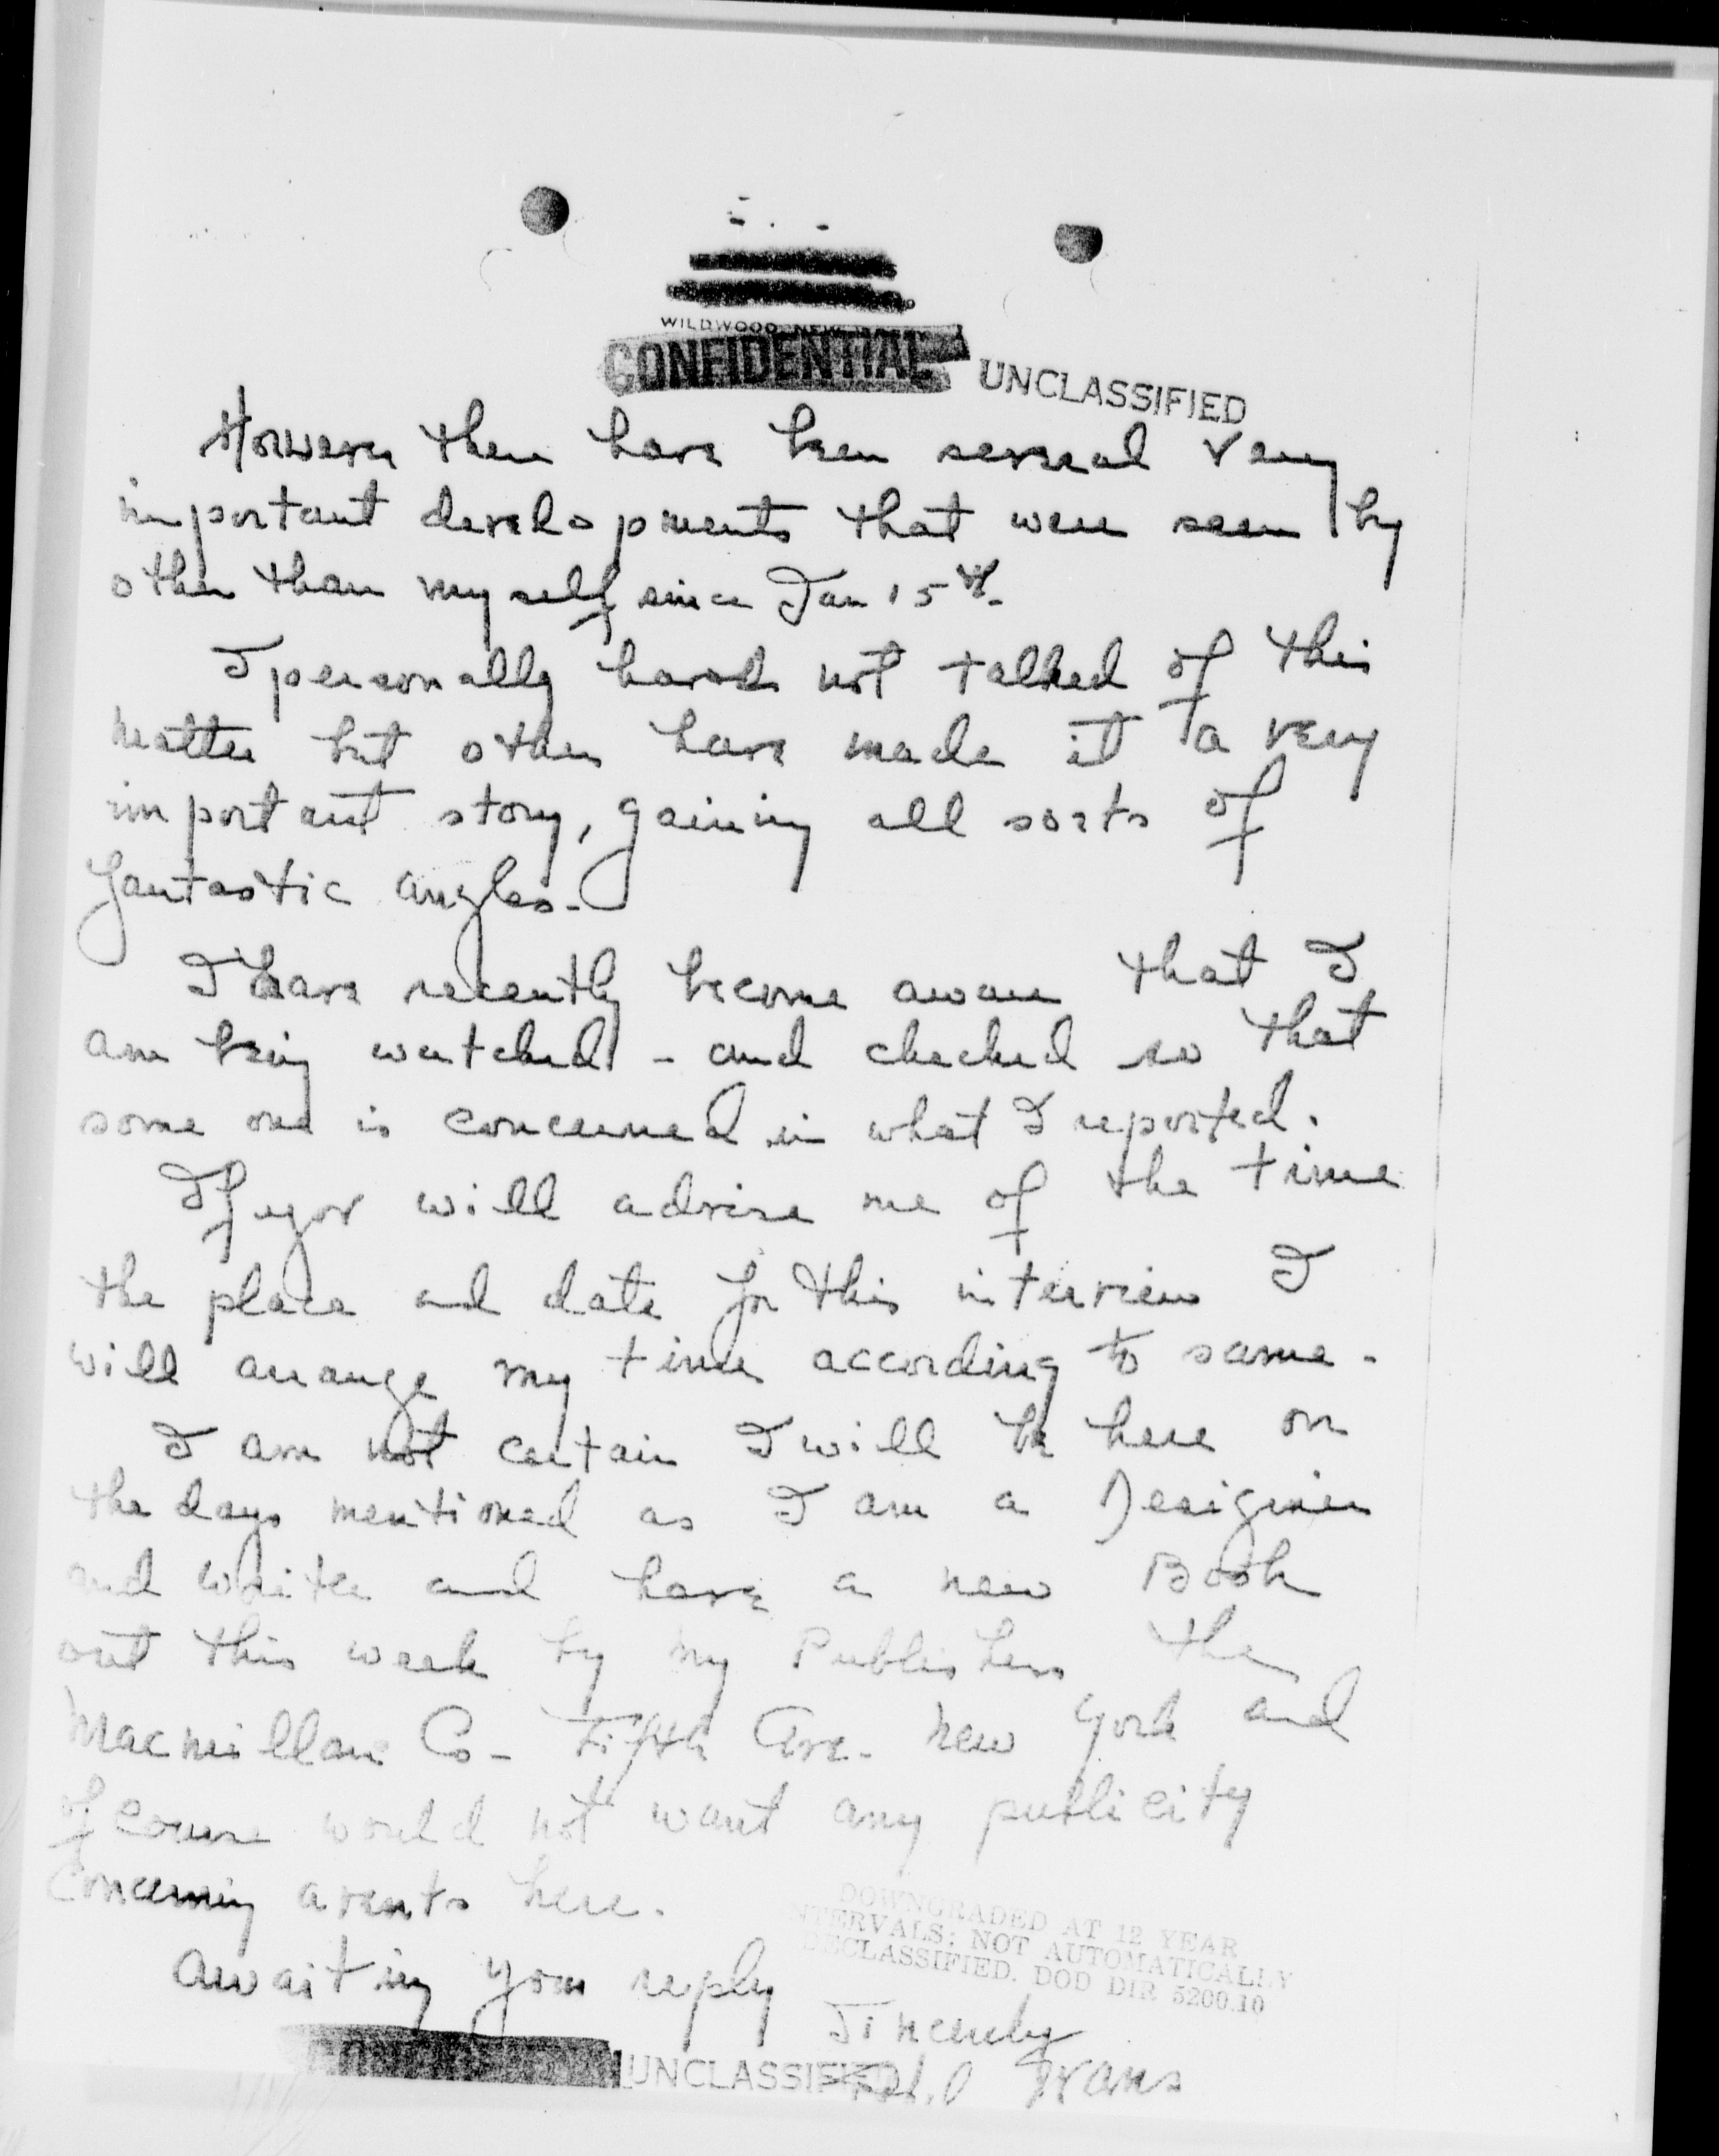 WILDWOOD, NEW JERSEY
CONFIDENTIAL UNCLASSIFIED
However there have been several very
important developments that were seen by
other than myself since Jan 15th.
I personally have not talked of this
matter but others have made it a very
important story, gaining all sorts of
fantastic angles.
I have recently become aware that I
am being watched - and checked so that
some one is concerned in what I reported.
If you will advise me of the time
the place and date for this interview I
will arrange my time according to same.
I am not certain I will be here on
the days mentioned as I am a Designer
and writer and have a new Book
out this week by my Publishers the
Macmillan Co - Fifth Ave. New York and
of course would not want any publicity
concerning events here.
DOWNGRADED AT 12 YEAR
INTERVALS: NOT AUTOMATICALLY
DECLASSIFIED. DOD DIR 5200.10
Awaiting your reply
Sincerely
UNCLASSIFIED
Evans